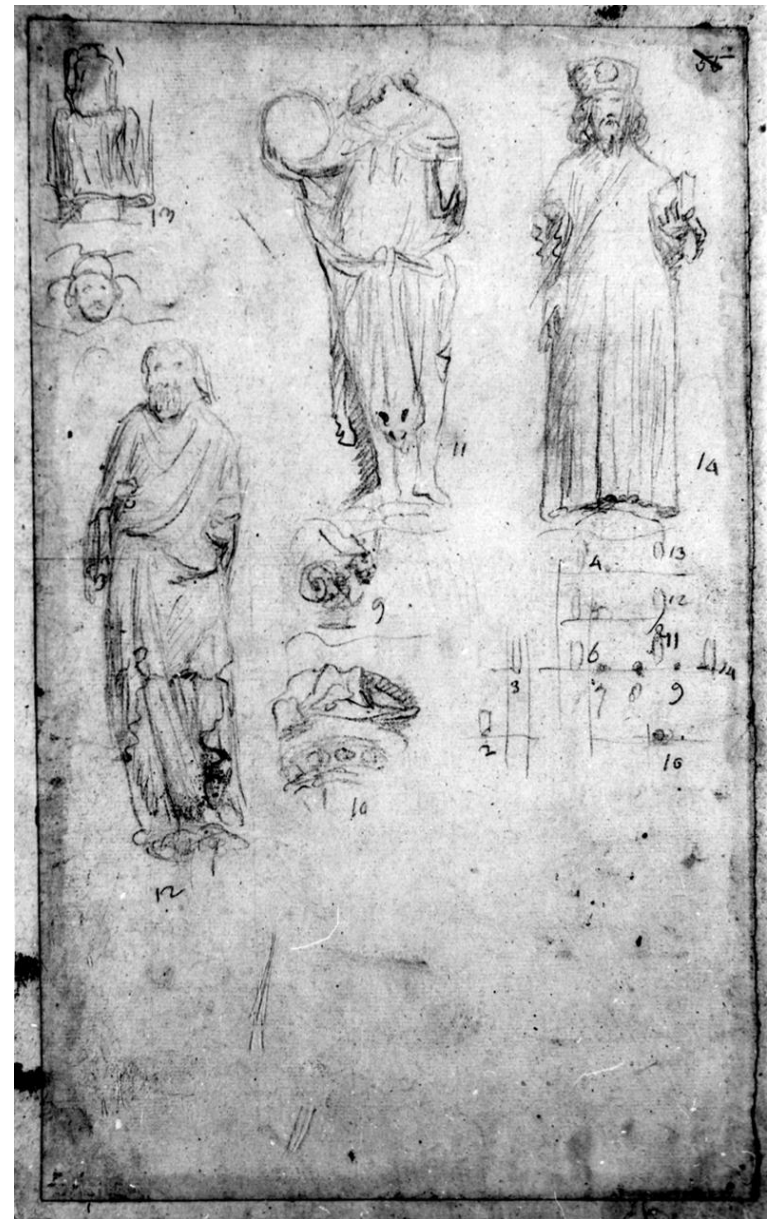 13
11
14
9
10
12
4 13
12
6 11 14
3 7 8 9
2
10